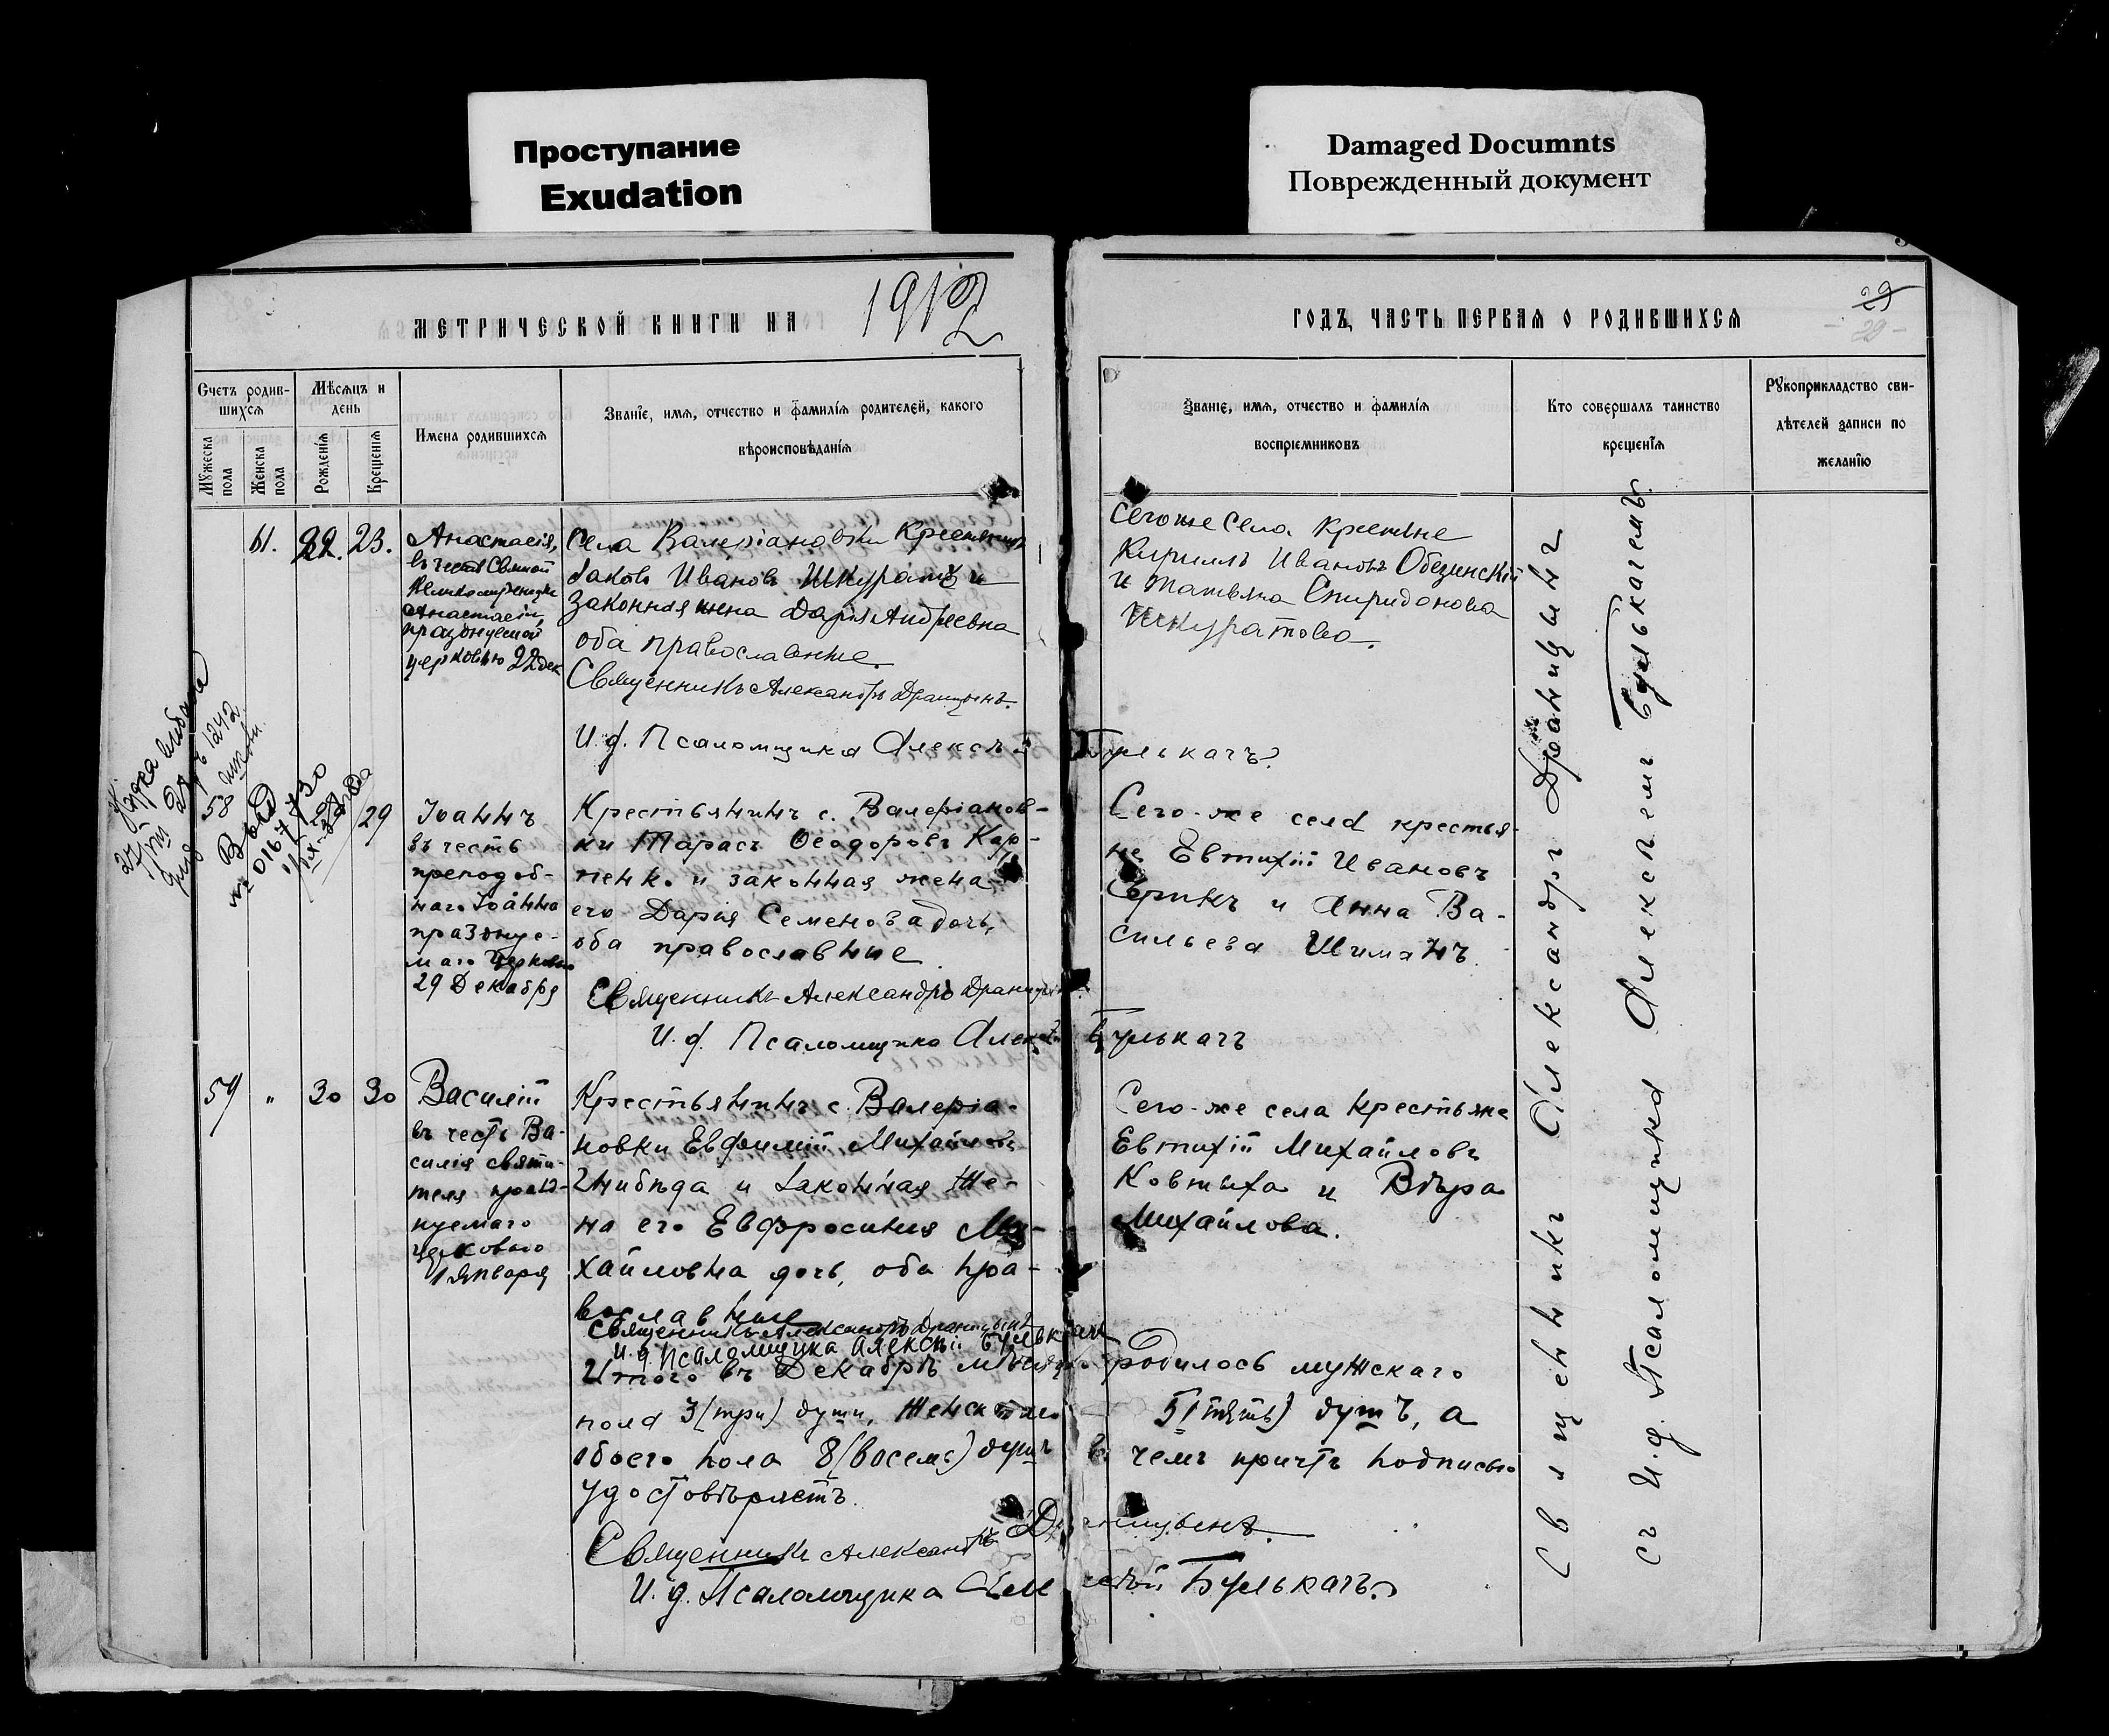 Проступание
Exudation
Damaged Documnts
Поврежденный документ
МЕТРИЧЕСКОЙ КНИГИ НА 1912
ГОДЪ, ЧАСТЬ ПЕРВАЯ О РОДИВШИХСЯ
29
29
Счетъ родив-
шихся
Мѣсяцъ и
день
Мужеска
пола
Женска
пола
Рожденія
Крещенія
Имена родившихся
Званіе, имя, отчество и фамилія родителей, какого
вѣроисповѣданія
Званіе, имя, отчество и фамилія
воспріемниковъ
Кто совершалъ таинство
крещенія
Рукоприкладство сви-
дѣтелей записи по
желанію
61. 22. 23.
Анастасія,
въ честь Святой
Великомученицы
Анастасіи,
празднуемой
церковью 22 дек
Села Валеріановки Крестьянинъ
Іаковъ Ивановъ Шкуратъ и
законная жена Дарія Андреевна
оба православные.
Священникъ Александръ Драницынъ.
И. д. Псаломщика Алексѣй Булькачъ.
Сегоже Села Крестьяне
Кириллъ Ивановъ Обезинскій
и Татьяна Спиридонова
Шкуратова.
58
29
Іоаннъ
въ честь
преподоб-
наго Іоанна
праздnуе-
маго Церковью
29 Декабря
Крестьянинъ с. Валеріанов-
ки Тарасъ Ѳеодоровъ Кор-
женко и законная жена
его Дарія Семенова дочь,
оба православные
Священникъ Александръ Драницынъ.
И. д. Псаломщика Алексѣй Булькачъ
Сего-же села крестья-
не Евтихій Ивановъ
и Анна Ва-
сильева Шиманъ.
№ 016773
59 " 30 30
Василій
въ честь Ва-
силія святи-
теля празд-
нуемаго
церковью
1 Января
Крестьянинъ с. Валеріа-
новки Евфимій Михайловъ
и законная же-
на его Евфросинія Ми-
хайловна дочь, оба пра-
вославные
Священникъ Александръ Драницынъ
И. д. Псаломщика Алексѣй Булькачъ
Сего-же села крестьяне
Евтихій Михайловъ
Ковтыха и Вѣра
Михайлова.
Итого въ Декабрѣ мѣсяцѣ родилось мужскаго
пола 3 (три) души, женскаго 5 (пять) душъ, а
обоего пола 8 (восемь) душъ въ чемъ причтъ подписью
удостовѣряетъ.
Священникъ Александръ Драницынъ.
И. д. Псаломщика Алексѣй Булькачъ.
Священникъ Александръ Драницынъ
съ И. д. Псаломщика Алексѣемъ Булькачемъ.